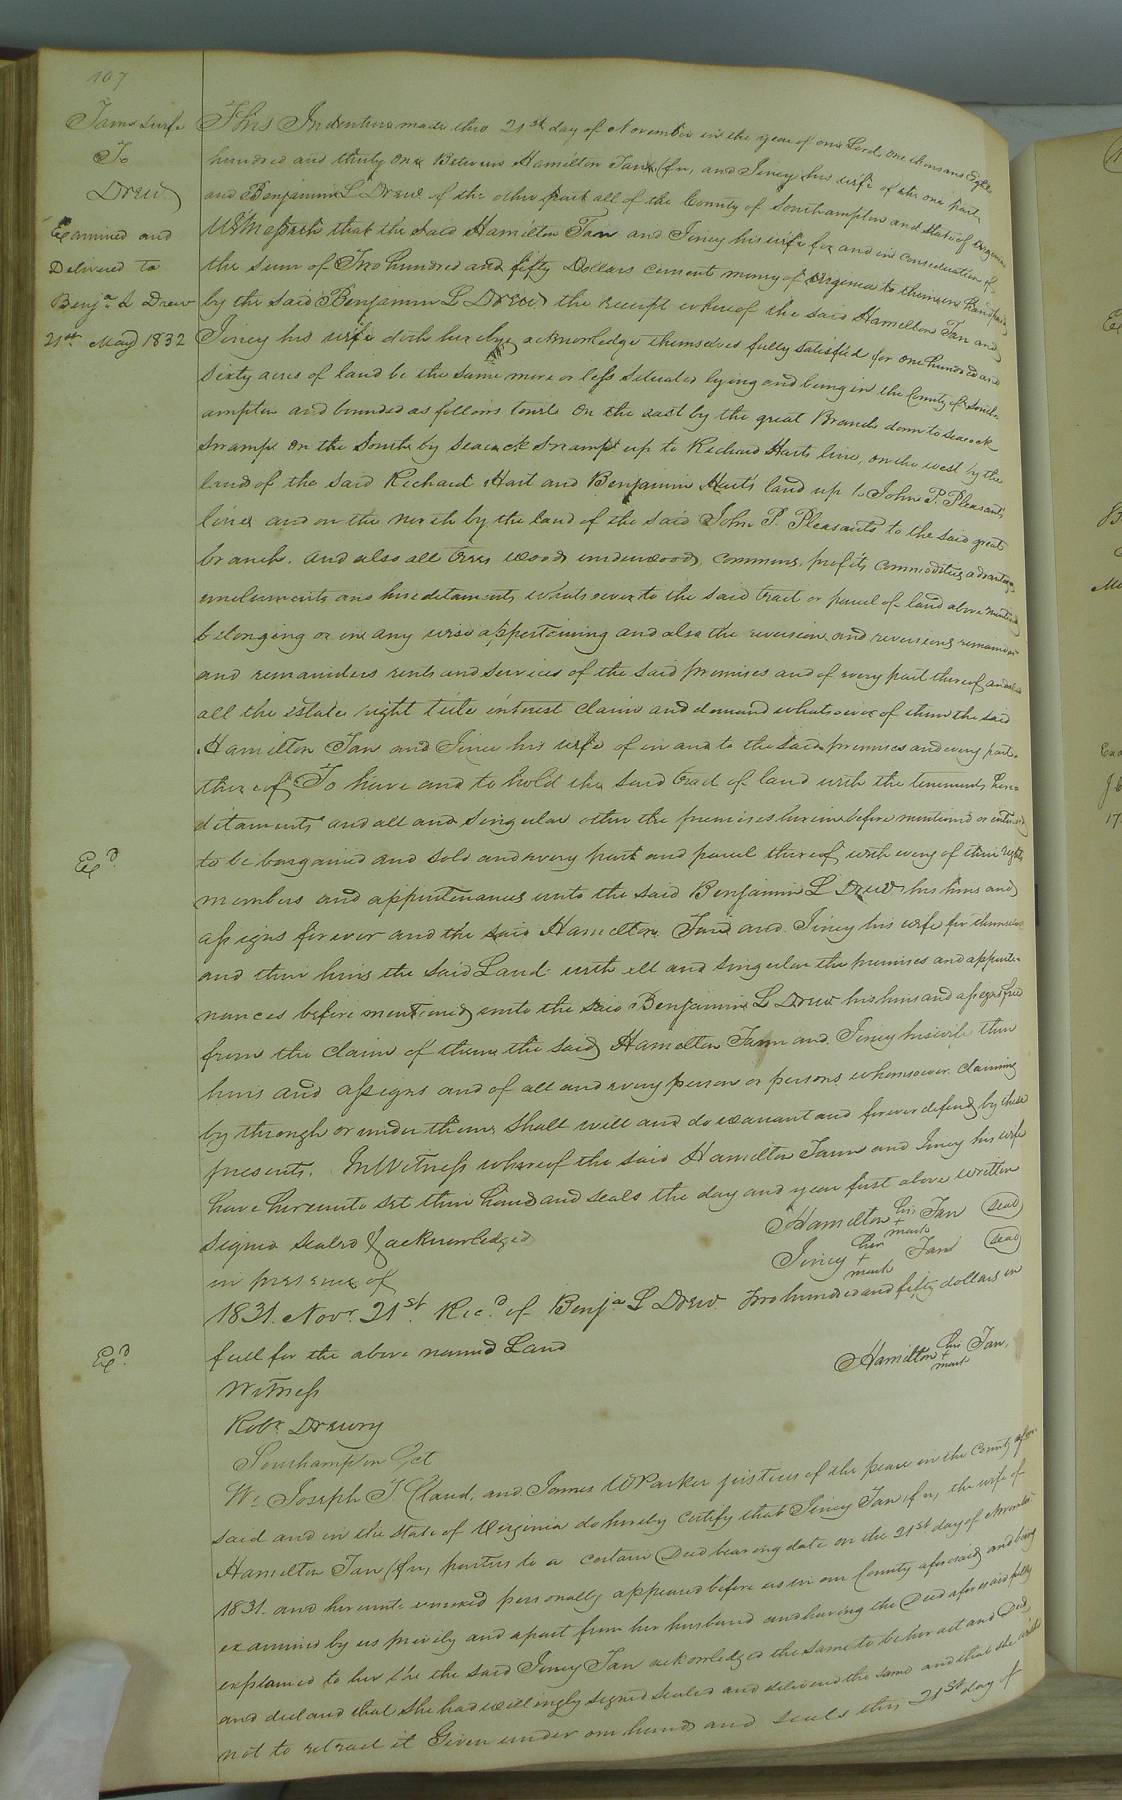 107
Tann & wife
To
Drew
Examined and
Delivered to
Benja. L Drew
21st May 1832
This Indenture made this 21st day of November in the year of our Lord one thousand Eight
hundred and thirty one Between Hamilton Tann (fn) and Jincy his wife of the one part
and Benjamin L Drew of the other part all of the County of Southampton and State of Virginia
Witnesseth that the said Hamilton Tan and Jincy his wife for and in consideration of
the sum of Two hundred and fifty Dollars current money of Virginia to them in hand paid
by the said Benjamin L Drew the receipt whereof the said Hamilton Tan and
Jincy his wife doth hereby acknowledge themselves fully satisfied for one hundred and
Sixty acres of land be the same more or less situated lying and being in the County of South-
ampton and bounded as follows towit On the east by the great Branch down to Seacock
Swamp on the South by Seacock Swamp up to Richard Harts line, on the west by the
land of the said Richard Hart and Benjamin Harts land up to John P. Pleasants
line and on the north by the land of the said John P. Pleasants to the said great
branch. and also all trees woods underwoods, commons, profits commodities advantages
emoluments and hereditaments whatsoever to the said tract or parcel of land above mentioned
belonging or in any wise appertaining and also the reversion and reversions remainder
and remainders rents and services of the said premises and of every part thereof and also
all the estate right title interest claim and demand whatsoever of them the said
Hamilton Tan and Jincy his wife of in and to the said premises and every part
thereof To have and to hold the said tract of land with the tenements here-
ditaments and all and singular other the premises herein before mentioned or intended
Exd.
to be bargained and sold and every part and parcel thereof with every of their rights
members and appurtenances unto the said Benjamin L Drew his heirs and
assigns forever and the said Hamilton Tan and Jincy his wife for themselves
and their heirs the said Land with all and singular the premises and appurte-
nances before mentioned unto the said Benjamin L Drew his heirs and assigns free
from the claim of them the said Hamilton Tann and Jincy his wife their
heirs and assigns and of all and every person or persons whomsoever claiming
by through or under them Shall will and do warrant and forever defend by these
presents. In Witness whereof the said Hamilton Tann and Jincy his wife
have hereunto set their hand and seals the day and year first above written
Signed Sealed & acknowledged
in presence of
Hamilton his + mark Tan (seal)
Jincy her + mark Tan (seal)
1831. Novr. 21st. Recd of Benja L Drew Two hundred and fifty dollars in
full for the above named Land
Hamilton his + mark Tan.
Exd.
Witness
Robt. Drewry
Southampton Sct
We Joseph T. Claud, and James W Parker justices of the peace in the County afore
said and in the State of Virginia do hereby certify that Jincy Tan, (fn), the wife of
Hamilton Tan (fn) parties to a certain Deed bearing date on the 21st day of November
1831. and hereunto annexed personally appeared before us in our County aforesaid and being
examined by us privily and apart from her husband and having the Deed aforesaid fully
explained to her she the said Jincy Tan acknowledged the same to be her act and Deed
and declared that she had willingly signed sealed and delivered the same and that she wished
not to retract it Given under our hands and seals this 21st day of